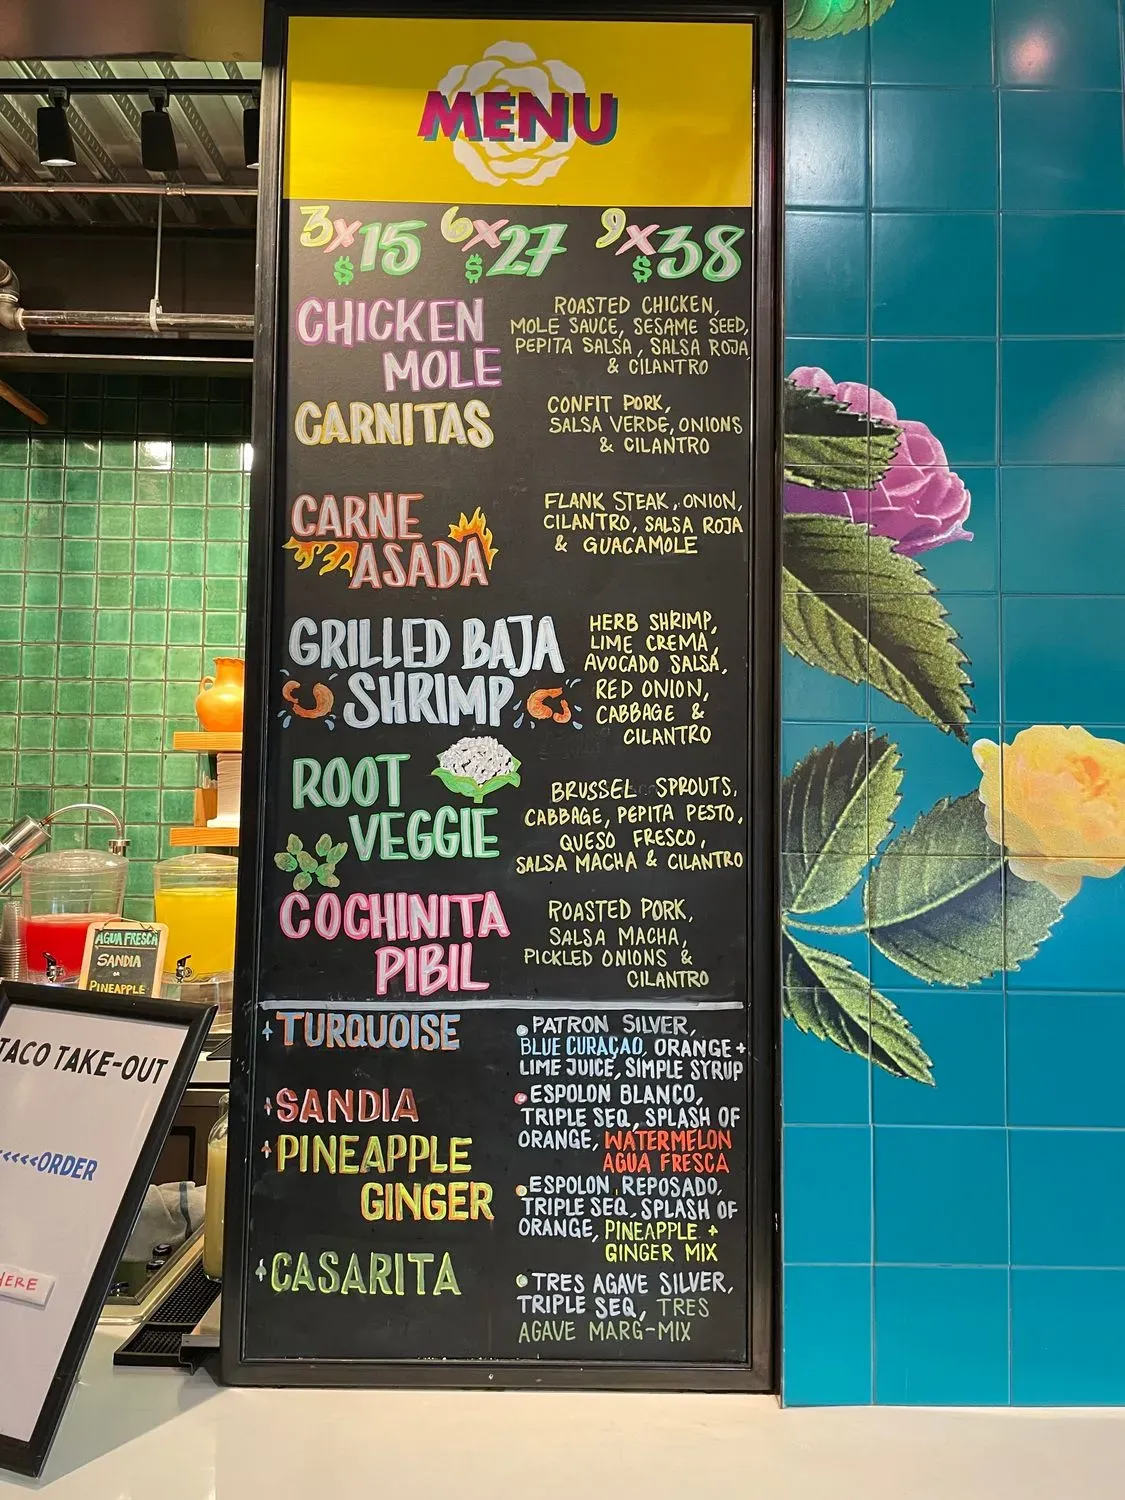 MENU
3 X $15 6 X $27 9 X $38
CHICKEN
MOLE
ROASTED CHICKEN,
MOLE SAUCE, SESAME SEED,
PEPITA SALSA, SALSA ROJA
& CILANTRO
CARNITAS
CONFIT PORK,
SALSA VERDE, ONIONS
& CILANTRO
CARNE
ASADA
FLANK STEAK, ONION,
CILANTRO, SALSA ROJA
& GUACAMOLE
GRILLED BAJA
SHRIMP
HERB SHRIMP,
LIME CREMA,
AVOCADO SALSA,
RED ONION,
CABBAGE &
CILANTRO
ROOT
VEGGIE
BRUSSEL SPROUTS,
CABBAGE, PEPITA PESTO,
QUESO FRESCO,
SALSA MACHA & CILANTRO
COCHINITA
PIBIL
ROASTED PORK,
SALSA MACHA,
PICKLED ONIONS &
CILANTRO
TURQUOISE
PATRON SILVER,
BLUE CURAÇAO, ORANGE +
LIME JUICE, SIMPLE SYRUP
SANDIA
ESPOLON BLANCO,
TRIPLE SEQ, SPLASH OF
ORANGE, WATERMELON
AGUA FRESCA
PINEAPPLE
GINGER
ESPOLON REPOSADO,
TRIPLE SEQ, SPLASH OF
ORANGE, PINEAPPLE +
GINGER MIX
CASARITA
TRES AGAVE SILVER,
TRIPLE SEQ, TRES
AGAVE MARG-MIX
AGUA FRESCA
SANDIA
OR
PINEAPPLE
TACO TAKE-OUT
<<<<<ORDER
HERE